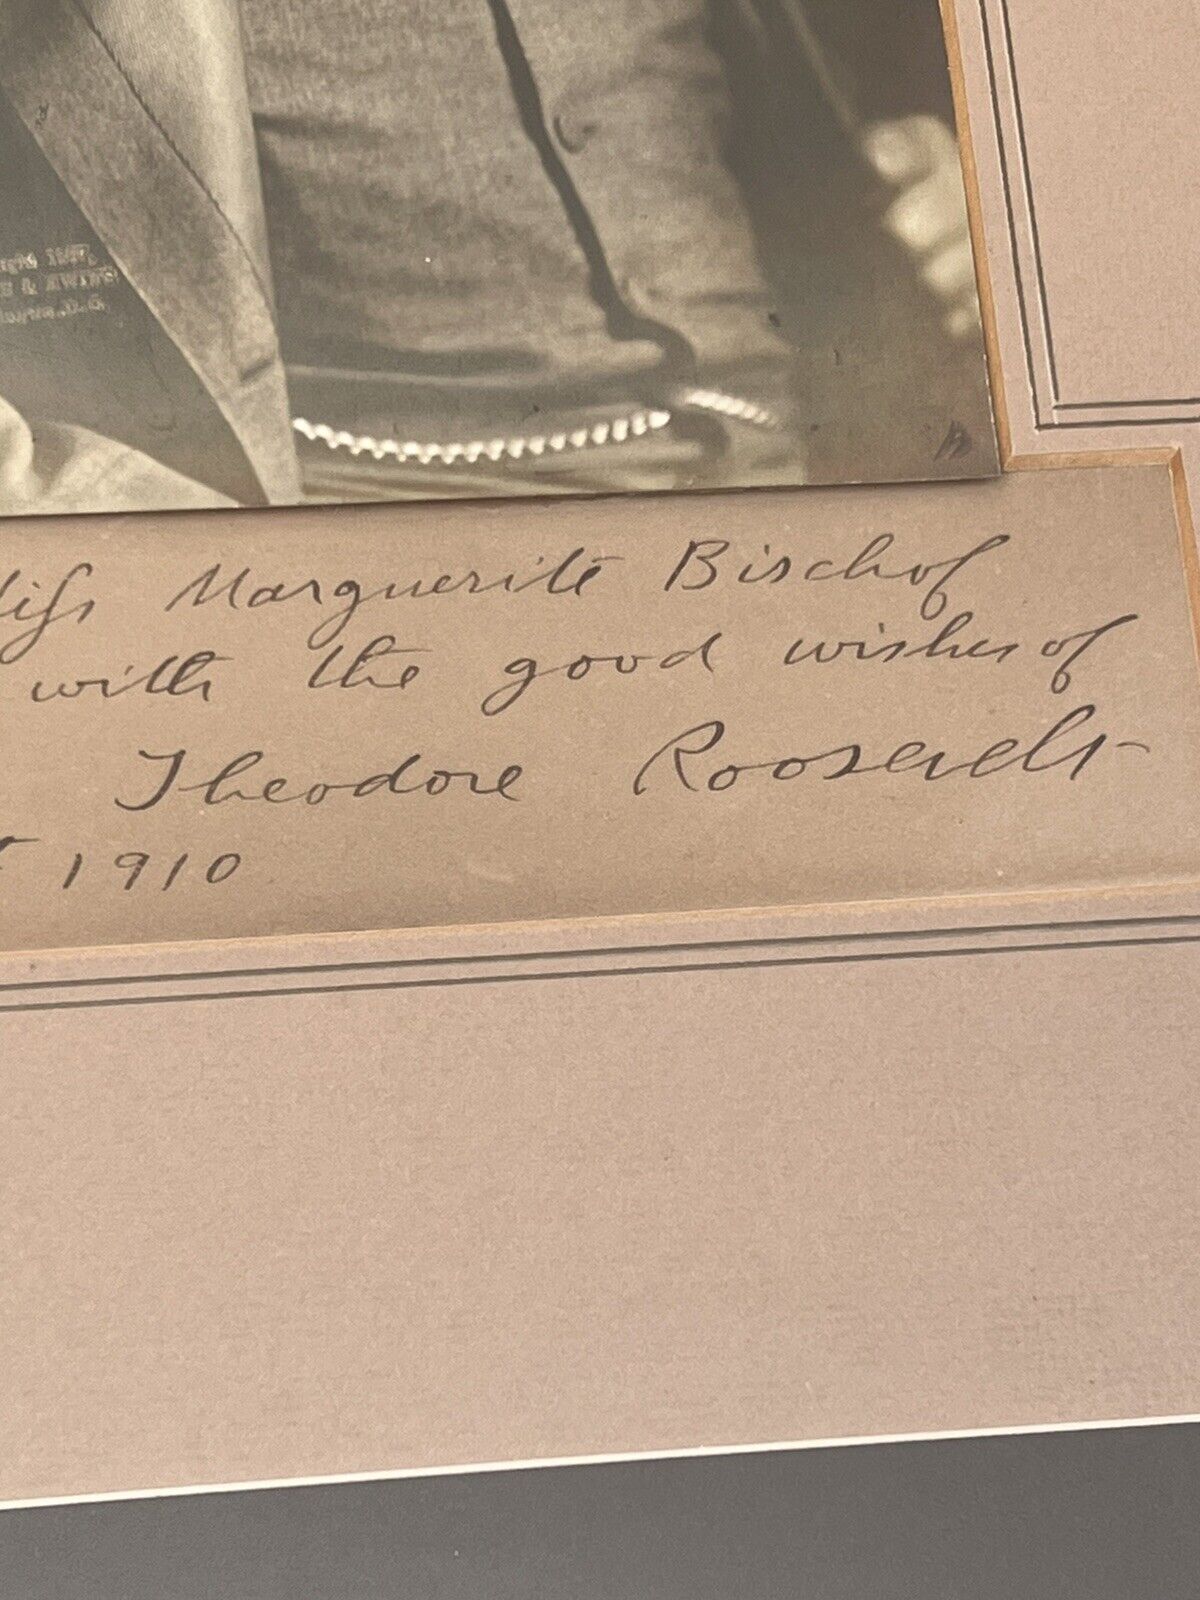 Miss Marguerite Bischof
with the good wishes of
Theodore Roosevelt
1910